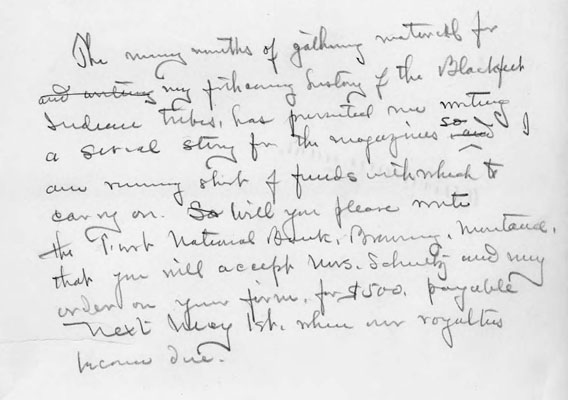 The many months of gathering materials for
and writing my forthcoming history of the Blackfeet
Indian tribes, has prevented me writing
a serial story for the magazines so and I
am running short of funds with which to
carry on. So Will you please write
the First National Bank, Browning, Montana,
that you will accept Mrs. Schultz and my
order on your firm, for $500. payable
next May 1st. when our royalties
become due.